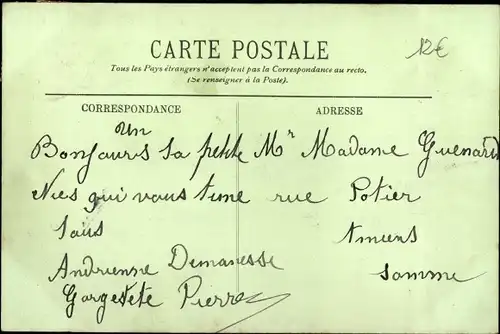 12€
CARTE POSTALE
Tous les Pays étrangers n'acceptent pas la Correspondance au recto.
(Se renseigner à la Poste).
CORRESPONDANCE
ADRESSE
un
Bonjours sa petite
Nies qui vous
Andrienne Demanesse
Pierre
Mr Madame Guenard
rue Potier
Amiens
somme